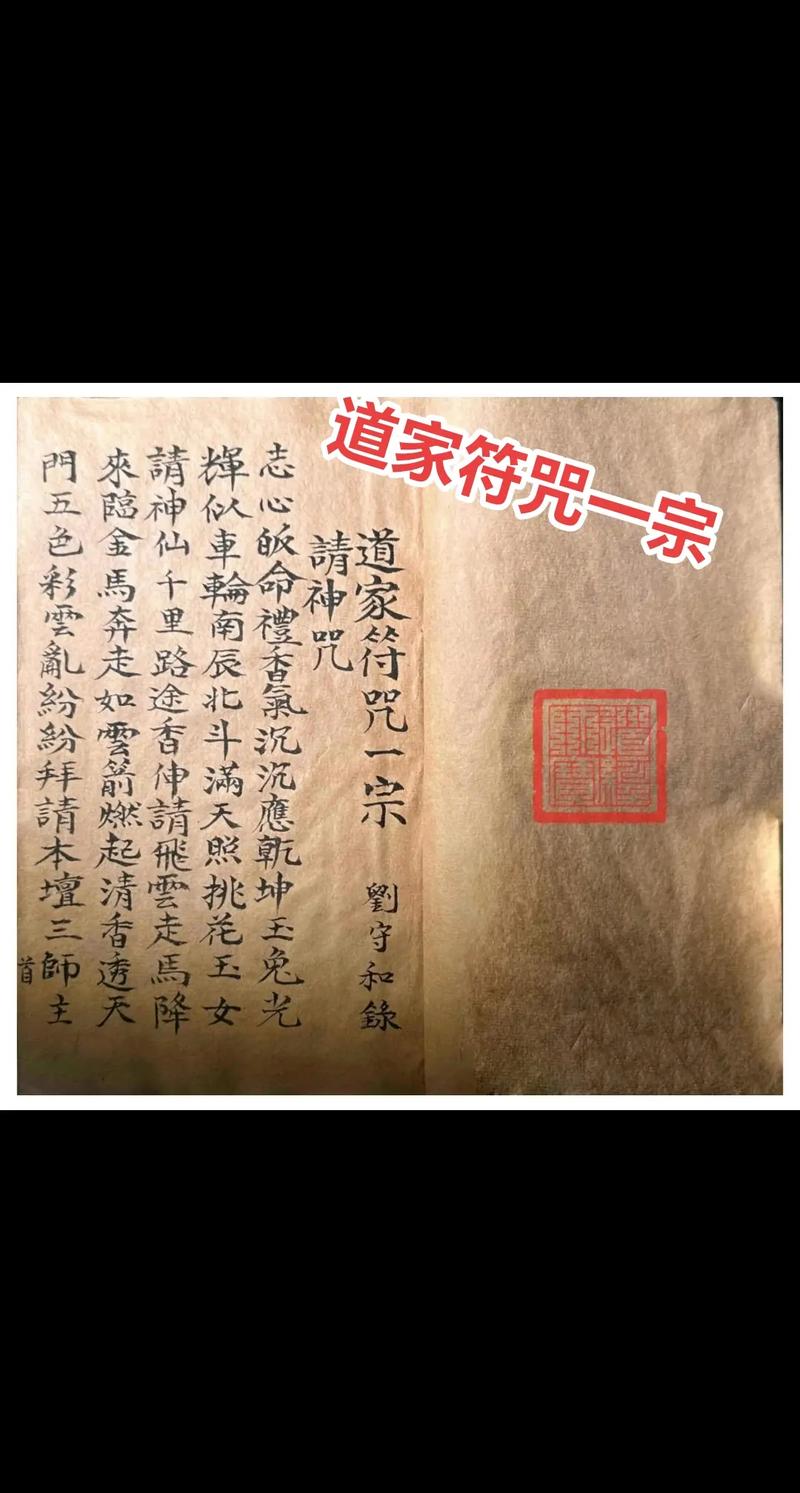 道家符咒一宗
道家符咒一宗 劉守和錄
請神咒
志心皈命禮香氣沉沉應乾坤玉兔光
輝似車輪南辰北斗滿天照挑花玉女
請神仙千里路途香伸請飛雲走馬降
來臨金馬奔走如雲箭燃起清香透天
門五色彩雲亂紛紛拜請本壇三師主
首